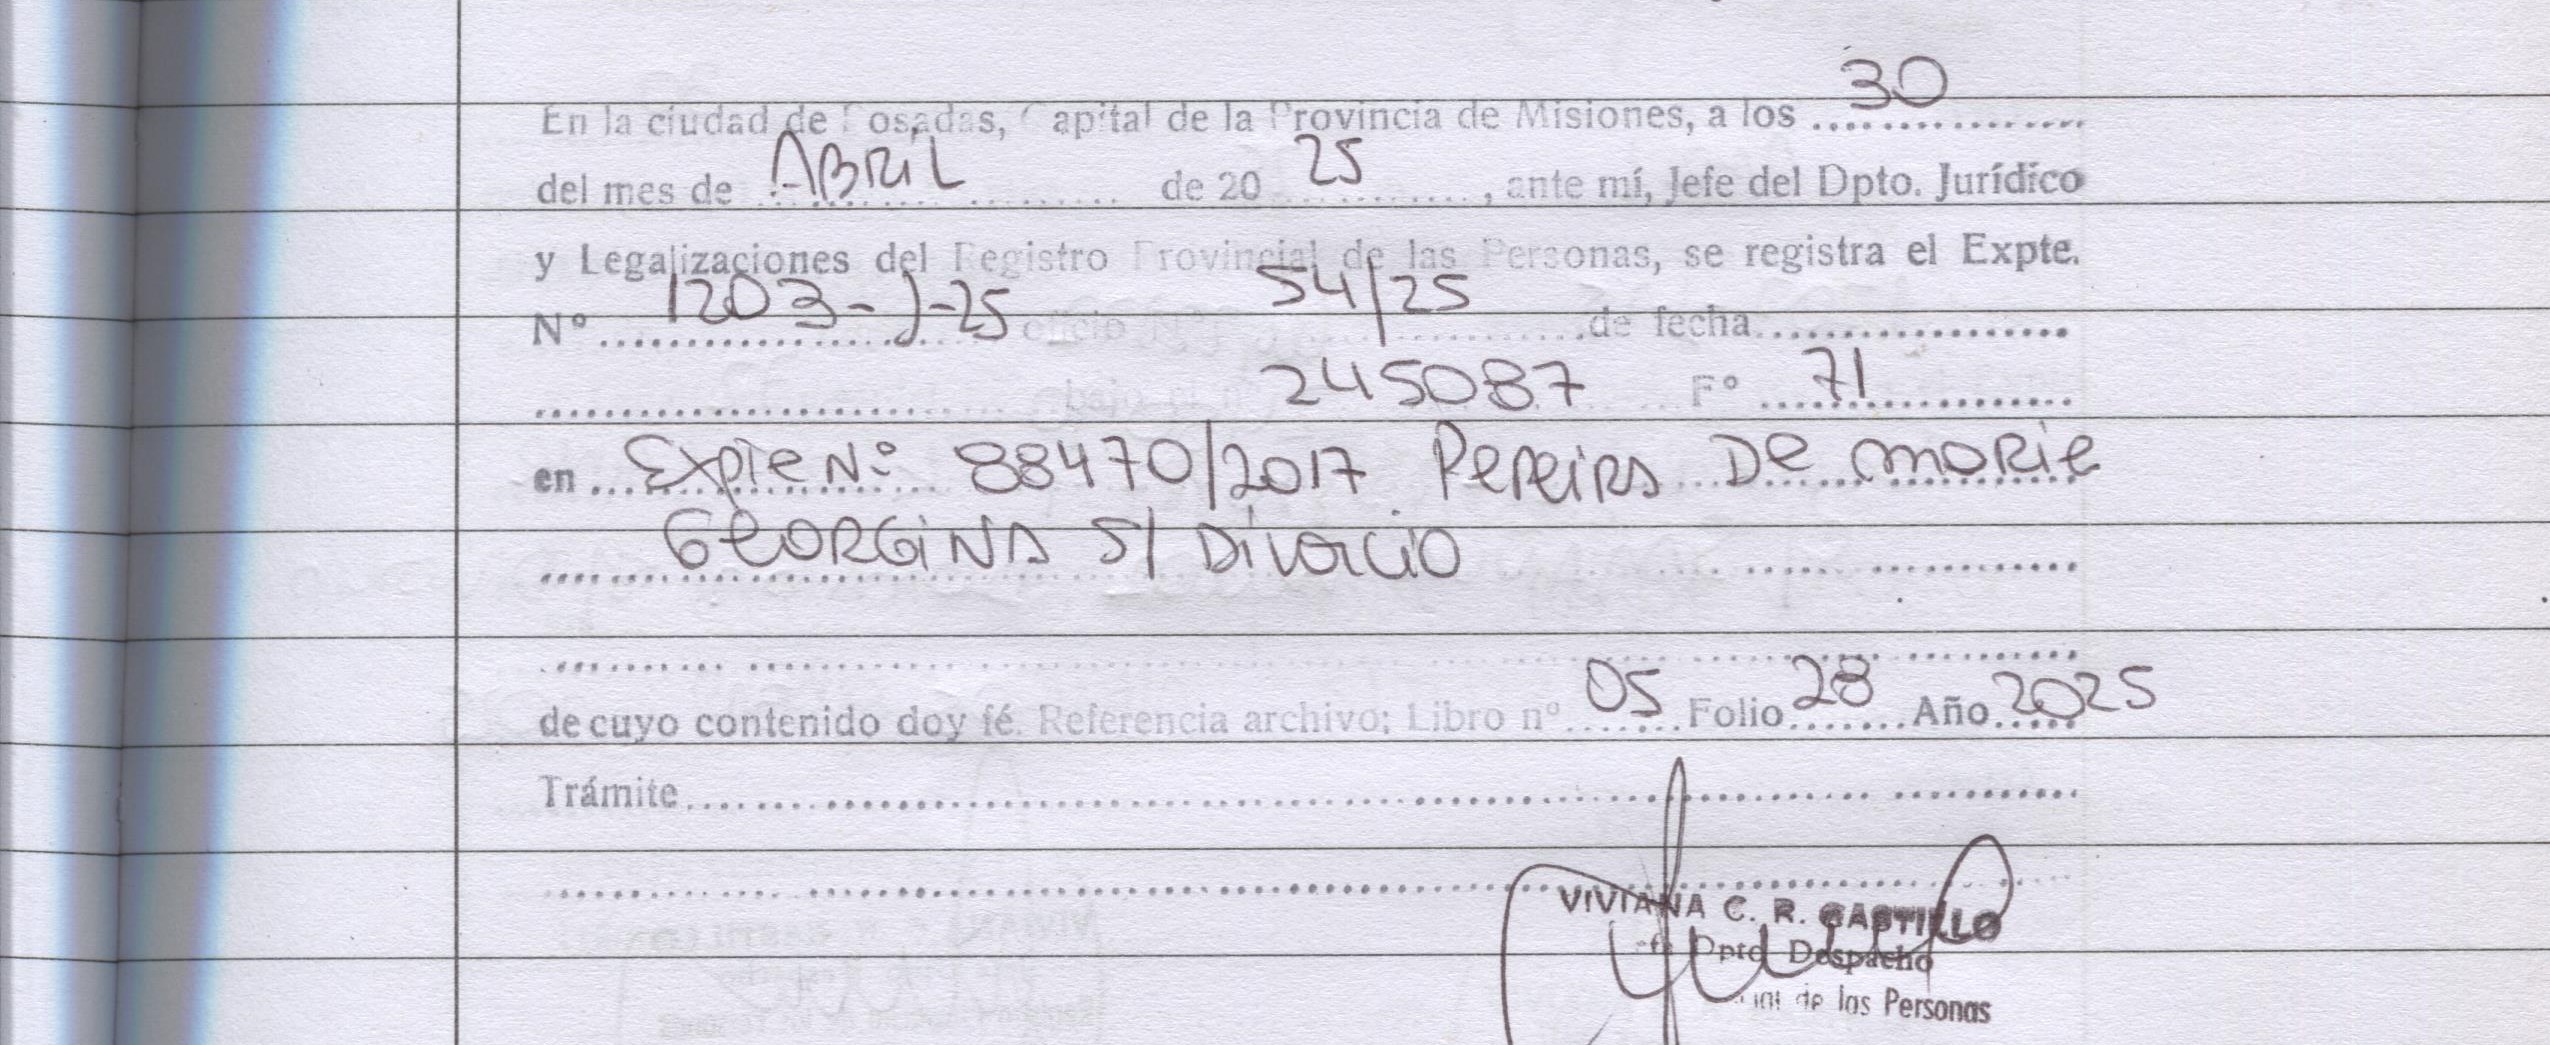 En la ciudad de Posadas, Capital de la Provincia de Misiones, a los 30
del mes de ABRIL de 20 25, ante mí, Jefe del Dpto. Jurídico
y Legalizaciones del Registro Provincial de las Personas, se registra el Expte.
Nº 1203-J-25 oficio Nº 54/25 de fecha
bajo el nº 245087 Fº 71
en Expte Nº 88470/2017 Pereira De morie
GEORGINA S/ Divorcio
de cuyo contenido doy fé. Referencia archivo; Libro nº 05 Folio 28 Año 2025
Trámite
VIVIANA C. R. CASTILLO
Dpto Despacho
de las Personas